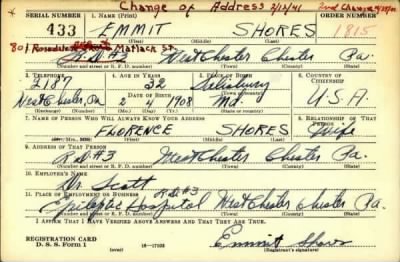 Change of Address 2/12/41
SERIAL NUMBER 1. NAME (Print) ORDER NUMBER
433 EMMIT SHORES 1815
(First) (Middle) (Last)
801 Matlack St.
2. ADDRESS (Print)
R.D. #2 West Chester Chester Pa.
(Number and street or R. F. D. number) (Town) (County) (State)
3. TELEPHONE 4. AGE IN YEARS 5. PLACE OF BIRTH 6. COUNTRY OF CITIZENSHIP
2187 32 Salisbury
(Town or county)
West Chester, Pa DATE OF BIRTH
2 4 1908 Md. U.S.A.
(Exchange) (Number) (Mo.) (Day) (Yr.) (State or country)
7. NAME OF PERSON WHO WILL ALWAYS KNOW YOUR ADDRESS 8. RELATIONSHIP OF THAT PERSON
FLORENCE SHORES Wife
(Mr., Mrs., Miss) (First) (Middle) (Last)
9. ADDRESS OF THAT PERSON
R.D. #3 West Chester Chester Pa.
(Number and street or R. F. D. number) (Town) (County) (State)
10. EMPLOYER'S NAME
Dr. Scott
11. PLACE OF EMPLOYMENT OR BUSINESS
R.D. #3
Epileptic Hospital West Chester Chester Pa.
(Number and street or R. F. D. number) (Town) (County) (State)
I AFFIRM THAT I HAVE VERIFIED ABOVE ANSWERS AND THAT THEY ARE TRUE.
REGISTRATION CARD
D. S. S. Form 1 (over) 16-17105
Emmit Shores
(Registrant's signature)